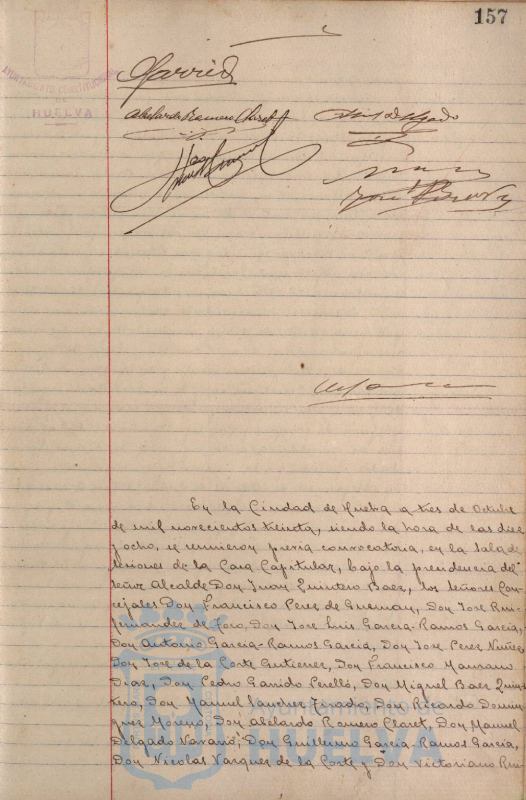 157
AYUNTAMIENTO CONSTITUCIONAL
DE
HUELVA
Garrido
Abelardo Romero Claret
José
En la Ciudad de Huelva a tres de Octubre
de mil novecientos treinta, siendo la hora de las diez
y ocho, se reunieron previa convocatoria, en la Sala de
sesiones de la Casa Capitular, bajo la presidencia del
señor Alcalde Don Juan Quintero Baez, los señores Con-
cejales Don Francisco Perez de Guzman, Don Jose Rui-
fernandez de Toro, Don Jose Luis Garcia-Ramos Garcia,
Don Antonio Garcia-Ramos Garcia, Don Jose Perez Nuñez,
Don Jose de la Corte Gutierrez, Don Francisco Manzano
Diaz, Don Pedro Garrido Perelló, Don Miguel Baez Quin-
tero, Don Manuel Sanchez Tirado, Don Ricardo Domin-
guez Moreno, Don Abelardo Romero Claret, Don Manuel
Delgado Navarro, Don Guillermo Garcia-Ramos Garcia,
Don Nicolas Vazquez de la Corte y Don Victoriano Rui-
Ayuntamiento
HUELVA